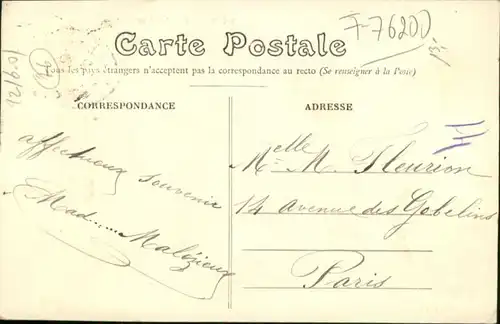 F-76200
Carte Postale
Tous les pays étrangers n'acceptent pas la correspondance au recto (Se renseigner à la Poste)
CORRESPONDANCE
ADRESSE
affectueux souvenir
Mad..... Malézieux
Melle M. Fleurion
14 avenue des Gobelins
Paris